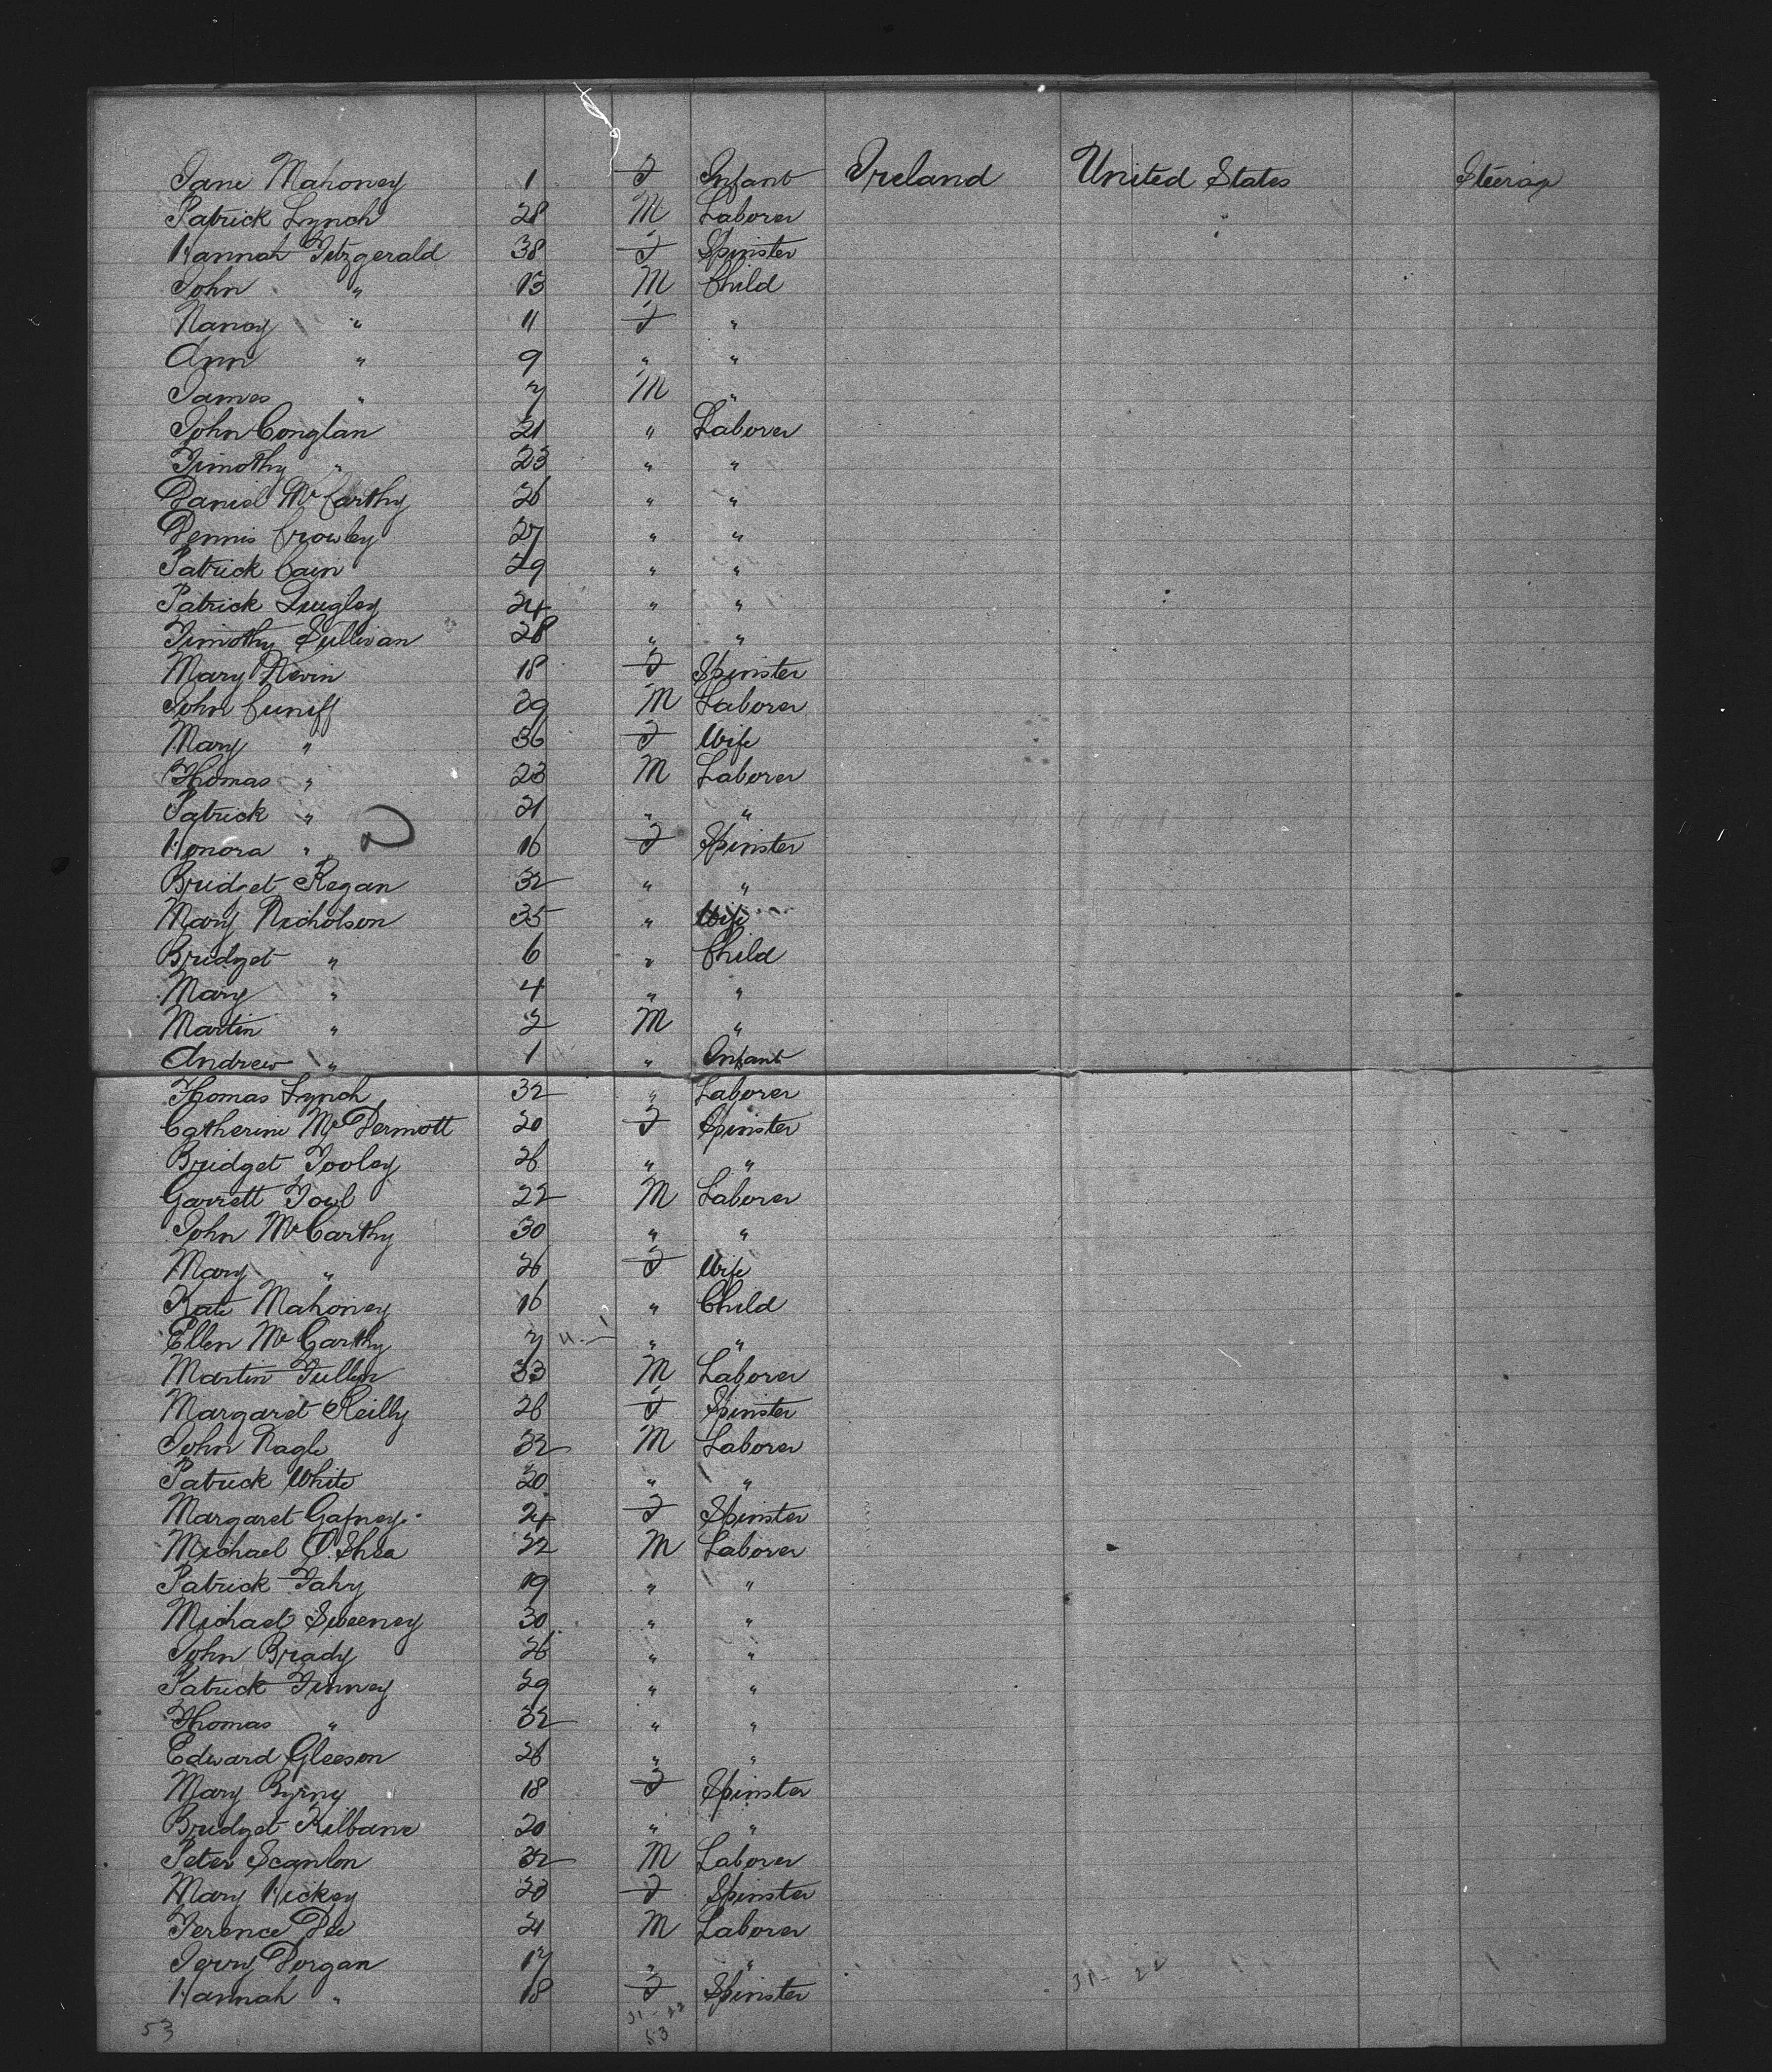 Jane Mahoney 1 F Infant Ireland United States Steerage
Patrick Lynch 28 M Laborer
Hannah Fitzgerald 38 F Spinster
John " 13 M Child
Nancy " 11 F "
Ann " 9 " "
James " 7 M "
John Conglan 21 " Laborer
Timothy " 23 " "
Daniel McCarthy 26 " "
Dennis Crowley 27 " "
Patrick Cain 29 " "
Patrick Quigley 24 " "
Timothy Sullivan 28 " "
Mary Nevin 18 F Spinster
John Cuniff 39 M Laborer
Mary " 36 F Wife
Thomas " 23 M Laborer
Patrick " 21 " "
Honora " 16 F Spinster
Bridget Regan 32 " "
Mary Nicholson 35 " Wife
Bridget " 6 " Child
Mary " 4 " "
Martin " 2 M "
Andrew " 1 " Infant
Thomas Lynch 32 " Laborer
Catherine McDermott 20 F Spinster
Bridget Tooley 26 " "
Garrett Fowl 22 M Laborer
John McCarthy 30 " "
Mary " 26 F Wife
Kate Mahoney 16 " Child
Ellen McCarthy 7 " "
Martin Fullin 33 M Laborer
Margaret Reilly 26 F Spinster
John Nagle 32 M Laborer
Patrick White 30 " "
Margaret Gafney 24 F Spinster
Michael O'Shea 22 M Laborer
Patrick Fahy 19 " "
Michael Sweeney 30 " "
John Brady 26 " "
Patrick Finney 29 " "
Thomas " 32 " "
Edward Gleeson 26 " "
Mary Byrny 18 F Spinster
Bridget Kilbane 20 " "
Peter Scanlon 32 M Laborer
Mary Hickey 23 F Spinster
Terence Dee 21 M Laborer
Jerry Dorgan 17 " "
Hannah " 18 F Spinster
31 - 22
53 53